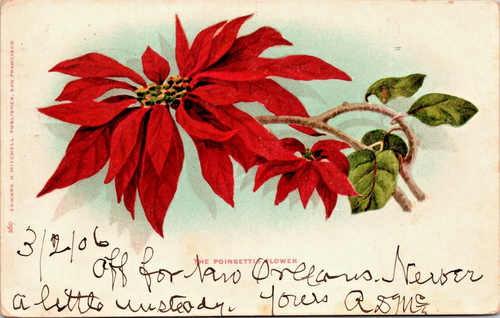 EDWARD H. MITCHELL, PUBLISHER, SAN FRANCISCO
THE POINSETTIA FLOWER
3/2/06
Off for New Orleans. Never
a little unsteady. Yours